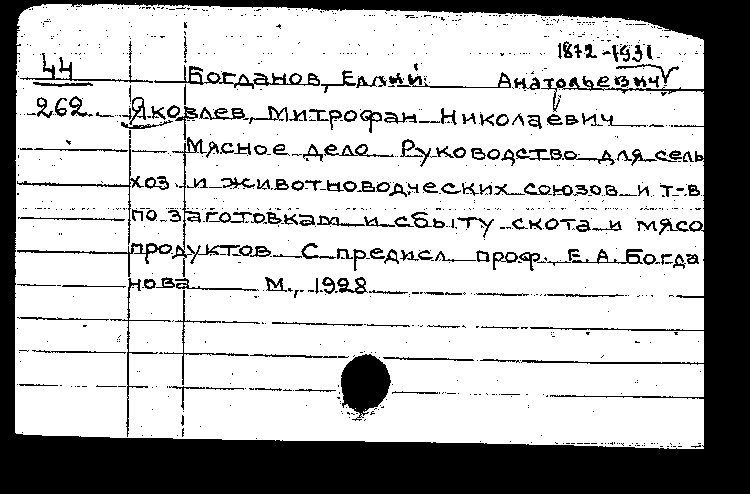 1872-1931
44 Богданов, Еллий Анатольевич
262 Яковлев, Митрофан Николаевич
Мясное дело. Руководство для сель
хоз. и животноводческих союзов и т-в
по заготовкам и сбыту скота и мясо
продуктов. С предисл. проф. Е. А. Богда
нова. М., 1928